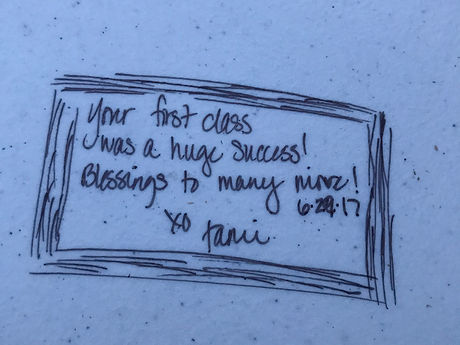 Your first class
was a huge success!
Blessings to many more!
6.24.17
XO
Tami